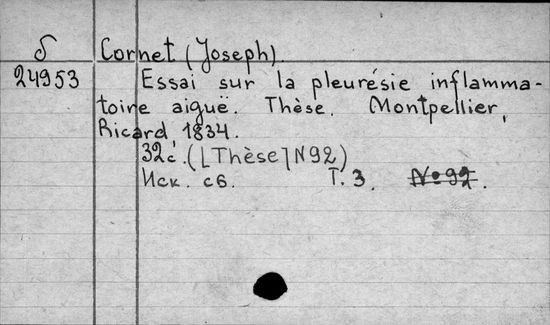 δ Cornet (Joseph).
24953 Essai sur la pleurésie inflamma-
toire aiguë. Thèse. Montpellier,
Ricard, 1834.
32c. ([Thèse] N92)
Иск. сб. Т. 3. №92.